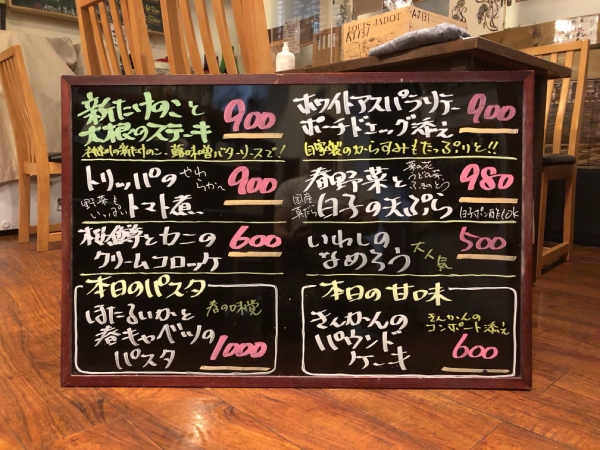 新たけのこと
大根のステーキ
900
新たけのこ、蕗味噌バターソースで!
トリッパの
やわらか
野菜もいっぱい
トマト煮
900
桜鱒とカニの
クリームコロッケ
600
本日のパスタ
ほたるいかと
春の味覚
春キャベツの
パスタ
1000
ホワイトアスパラソテー
ポーチドエッグ添え
900
自家製のからすみもたっぷりと!!
春野菜と
菜の花
うどの芽
ふきのとう
国産真だら
白子の天ぷら
980
白子ポン酢もOK
いわしの
なめろう
大人気
500
本日の甘味
きんかんの
パウンド
ケーキ
きんかんの
コンポート添え
600
LOUIS JADOT